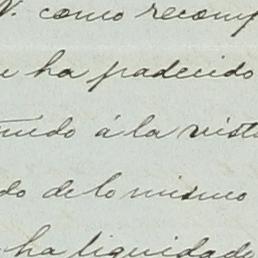 V. como recomp
e ha padecido
niendo á la vista
do de lo mismo
ha liquidado